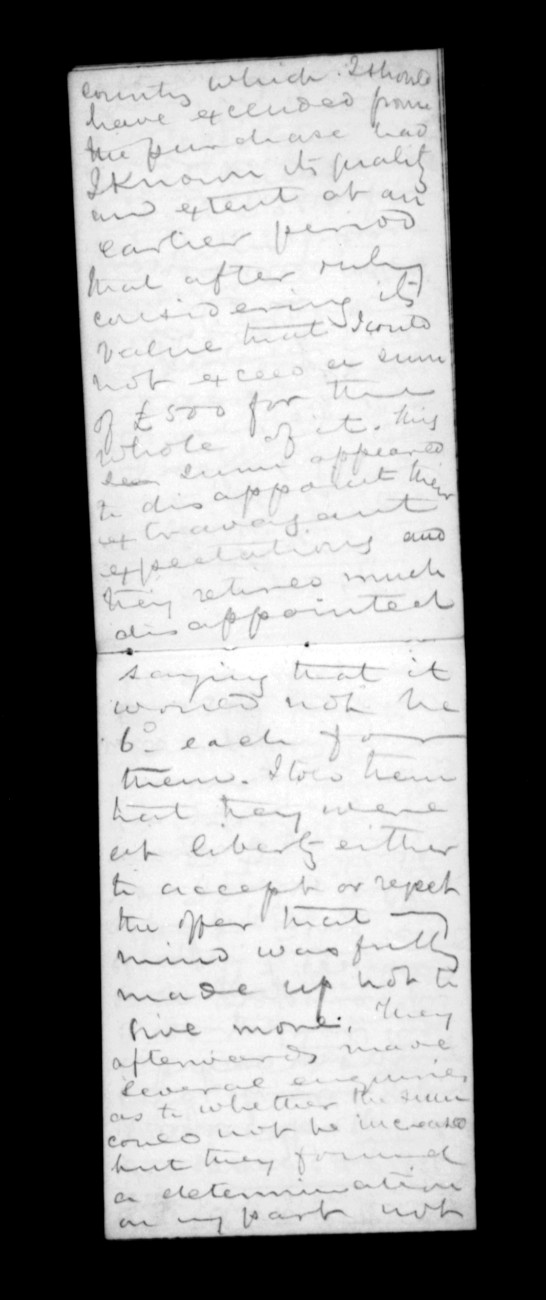 country which I should
have excluded from
the purchase had
I known its quality
and extent at an
earlier period
that after
considering its
value that I could
not exceed a sum
of £500 for the
whole of it. This
sum appeared
to disappoint their
extravagant
expectations and
they retired much
disappointed
saying that it
would not be
6d each for
them. I told them
that they were
at liberty either
to accept or reject
the offer that my
mind was fully
made up not to
give more. They
afterwards made
several enquiries
as to whether the sum
could not be increased
but they found
a determination
on my part not